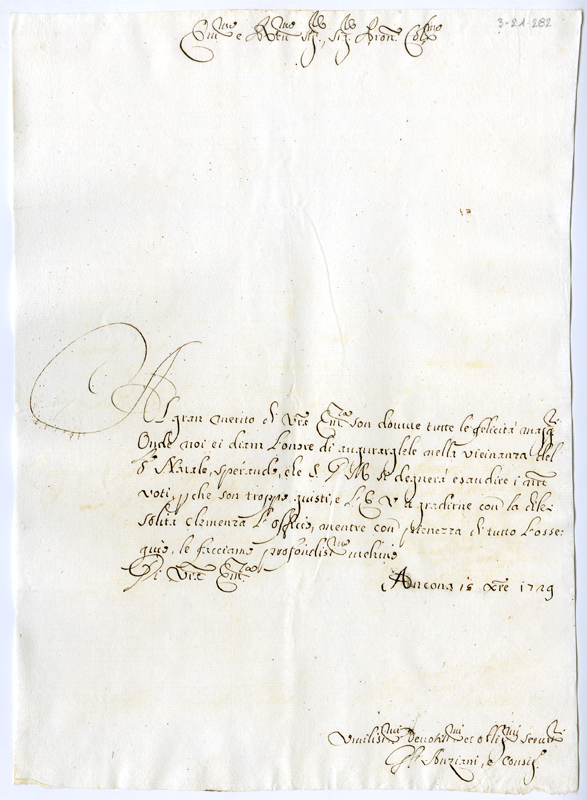 3-21-282
Em:mo e R:mo Sig:r, Sig:r Pron: Col:mo
Al gran merito di Vra Em:za son dovute tutte le felicità magg:ri
Onde noi ci diam l'onore di augurarglele nella vicinanza del
S. Natale, sperando, che S. D. M. si degnerà esaudire i nri
voti, pche son troppo giusti, e l'E V. a gradirne con la di lei
solita clemenza l'offizio, mentre con pienezza di tutto l'osse-
quio, le facciamo profondiss:mo inchino
Di Vra Em:za
Ancona 15 Xbre 1729
Umiliss:mi Devotiss:mi et obblig:mi Servit:ri
Gli Anziani, e Consig: